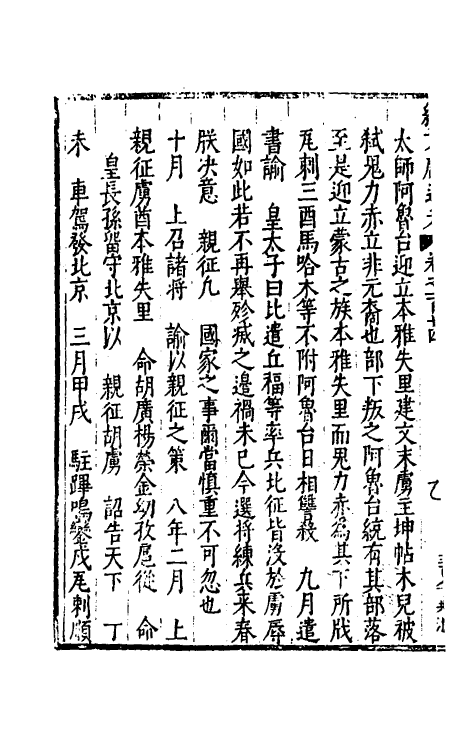 太師阿魯台迎立本雅失里建文末虜主坤帖木兒被
弒鬼力赤立非元裔也部下叛之阿魯台統有其部落
至是迎立蒙古之族本雅失里而鬼力赤為其下所戕
瓦剌三酋馬哈木等不附阿魯台日相讐殺 九月遣
書諭 皇太子曰比遣丘福等率兵北征皆沒於虜辱
國如此若不再舉殄滅之邊禍未已今選將練兵来春
朕决意 親征凡 國家之事爾當慎重不可忽也
十月 上召諸將 諭以親征之策 八年二月 上
親征虜酋本雅失里 命胡廣楊榮金幼孜扈從 命
皇長孫留守北京以 親征胡虜 詔告天下 丁
未 車駕發北京 三月甲戌 駐蹕鳴鑾戍瓦剌順